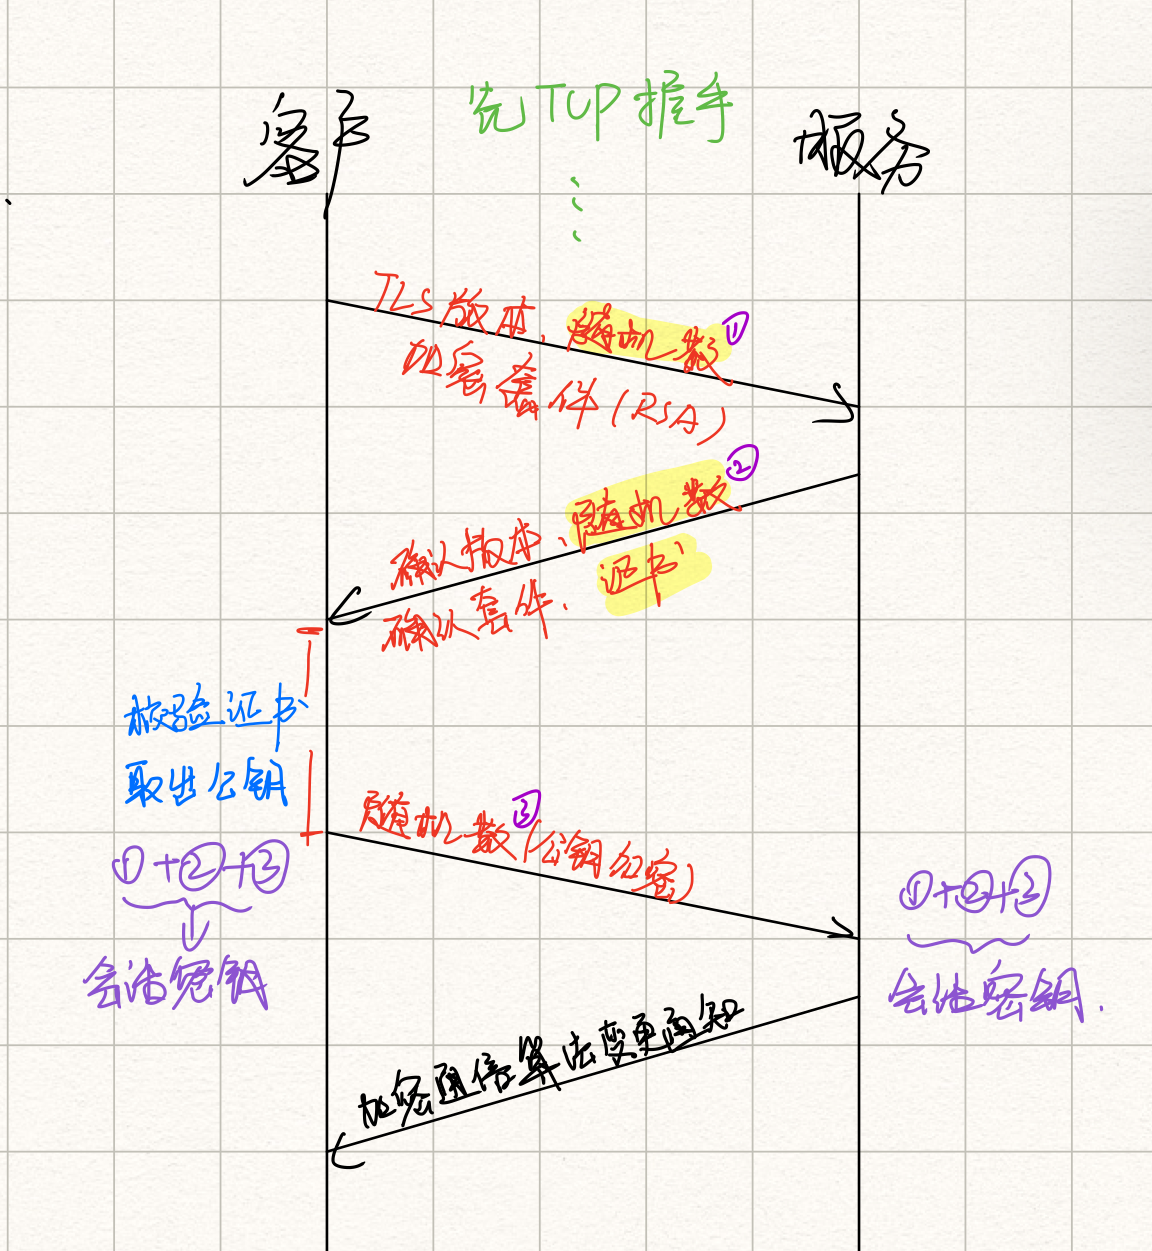 先TCP握手
客户
服务
TLS版本、随机数①
加密套件(RSA)
确认版本、随机数②
确认套件、证书
校验证书
取出公钥
随机数③(公钥加密)
①+②+③
会话密钥
①+②+③
会话密钥.
加密通信算法变更通知